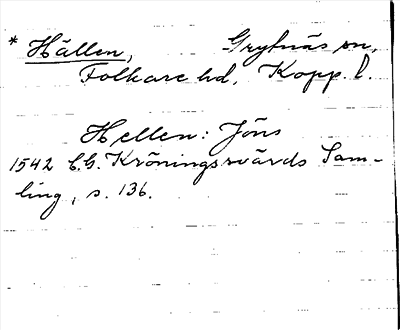 * Hällen, Grytnäs sn,
Folkare hd, Kopp. l.
Hellen: Jöns
1542 C.G. Kröningsvärds Sam-
ling, s. 136.